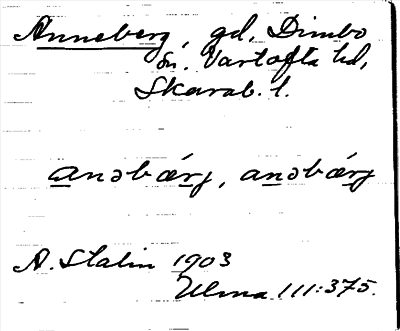 Anneberg, gd, Dimbo
sn. Vartofta hd,
Skarab. l.
anəbærj, anəbærj
A. Stalin 1903
Ulma 111:375.